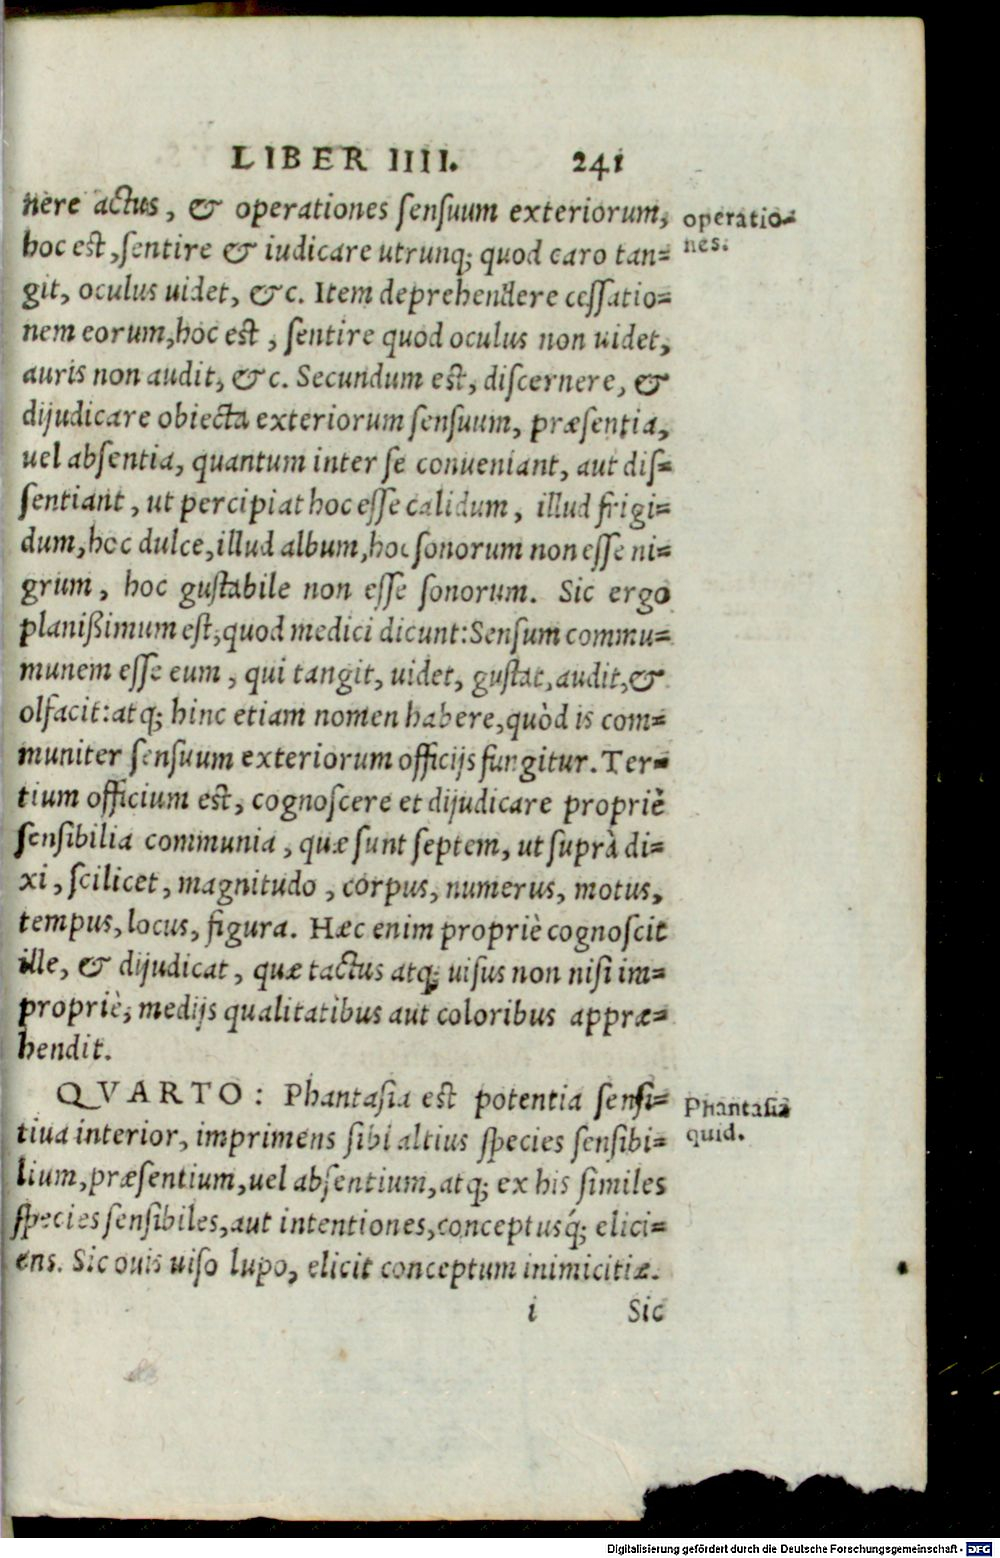 LIBER IIII. 241
nere actus, & operationes sensuum exteriorum,
operatio=
nes.
hoc est, sentire & iudicare utrunq; quod caro tan=
git, oculus uidet, &c. Item deprehendere cessatio=
nem eorum, hoc est, sentire quod oculus non uidet,
auris non audit, &c. Secundum est, discernere, &
dijudicare obiecta exteriorum sensuum, præsentia,
uel absentia, quantum inter se conueniant, aut dis=
sentiant, ut percipiat hoc esse calidum, illud frigi=
dum, hoc dulce, illud album, hoc sonorum non esse ni=
grum, hoc gustabile non esse sonorum. Sic ergo
planißimum est, quod medici dicunt: Sensum commu=
munem esse eum, qui tangit, uidet, gustat, audit, &
olfacit: atq; hinc etiam nomen habere, quòd is com=
muniter sensuum exteriorum officijs fungitur. Ter=
tium officium est, cognoscere et dijudicare propriè
sensibilia communia, quæ sunt septem, ut suprà di=
xi, scilicet, magnitudo, corpus, numerus, motus,
tempus, locus, figura. Hæc enim propriè cognoscit
ille, & dijudicat, quæ tactus atq; uisus non nisi im=
propriè, medijs qualitatibus aut coloribus appræ=
hendit.
QVARTO: Phantasia est potentia sensi=
Phantasia
quid.
tiua interior, imprimens sibi altius species sensibi=
lium, præsentium, uel absentium, atq; ex his similes
species sensibiles, aut intentiones, conceptusq́; elici=
ens. Sic ouis uiso lupo, elicit conceptum inimicitiæ.
i Sic
Digitalisierung gefördert durch die Deutsche Forschungsgemeinschaft - DFG